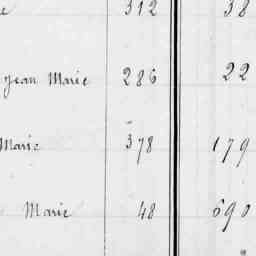 312 38
Jean Marie 286 22
Marie 378 179
Marie 48 690